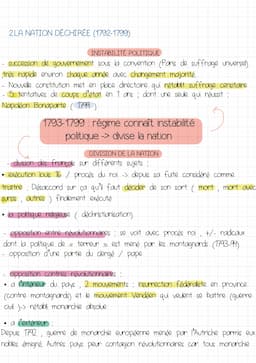 2.LA NATION DÉCHIRÉE (1792-1799)
INSTABILITÉ POLITIQUE
- succession de gouvernement sous la convention (Pans de suffrage universel),
très rapide environ chaque année avec changement majorité
- Nouvelle constitution met en place directoire qui rétablit suffrage censitaire
- 5 tentatives de coups d'état en 7 ans ; dont une seule qui réussit :
Napoléon Bonaparte ( 1799 )
1793-1799 : régime connaît instabilité
politique -> divise la nation
DIVISION DE LA NATION
- division des français sur différents sujets :
• exécution louis 16 / procès du roi -> depuis sa fuite considéré comme
traître . Désaccord sur ça qu'il faut décider de son sort ( mort , mort avec
sursis , autres ) finalement exécuté
• la politique religieuse ( déchristianisation)
- opposition entre révolutionnaires : se voit avec procès roi , +/- radicaux
dont la politique de « terreur » est mené par les montagnards (1793-94)
- opposition d'une partie du clergé / pape
- opposition contre révolutionnaires :
• a l'intérieur du pays , 2 mouvements : insurrection fédéraliste en province
(contre montagnards) et le mouvement Vendéen qui veulent se battre (guerre
civil )-> rétablir monarchie absolue
• a l'extérieur:
Depuis 1792 , guerre de monarchie européenne menée par l'Autriche parmis eux
nobles émigré. Autres pays peur contagion révolutionnaires car tous monarchie